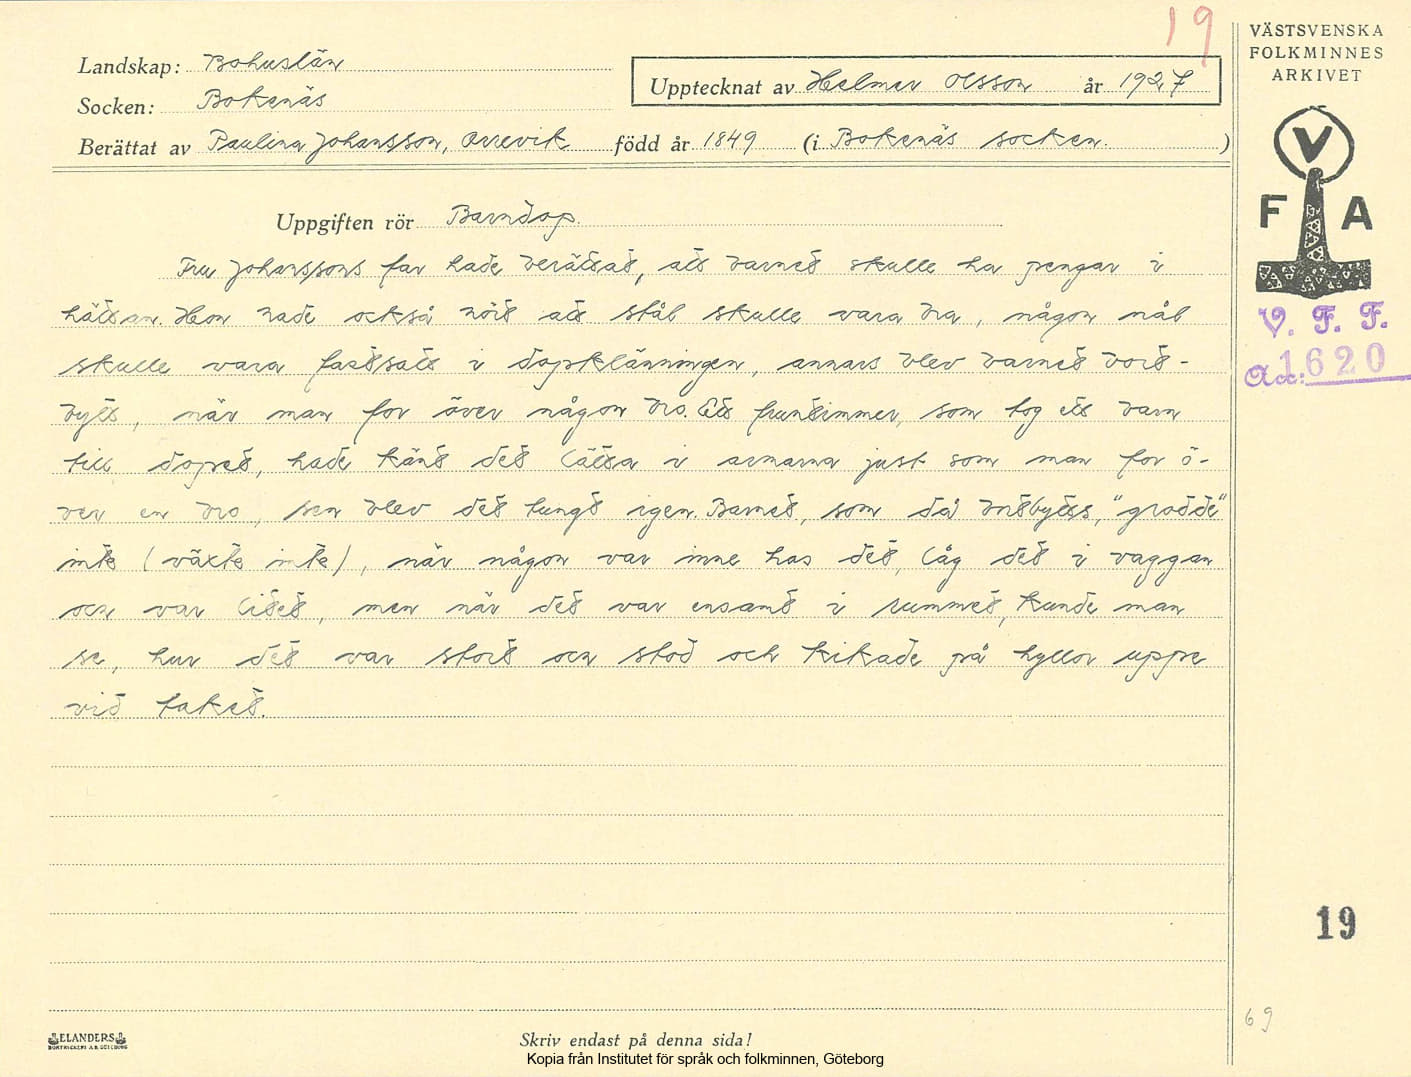 19
VÄSTSVENSKA
FOLKMINNES
ARKIVET
Landskap: Bohuslän
Upptecknat av Helmer Olsson år 1927
Socken: Bokenäs
Berättat av Paulina Johansson, Orrevik född år 1849 (i Bokenäs socken. )
V
F A
Uppgiften rör Barndop.
Fru Johanssons far hade berättat, att barnet skulle ha pengar i
hättan. Hon hade också hört att stål skulle vara bra, någon nål
skulle vara fastsatt i dopklänningen, annars blev barnet bort-
bytt, när man for över någon bro. Ett fruntimmer, som tog ett barn
till dopet, hade känt det lätta i armarna just som man for ö-
ver en bro, sen blev det tungt igen. Barnet, som då bortbytts, "grodde"
inte (växte inte), när någon var inne hos det, låg det i vaggan
och var litet, men när det var ensamt i rummet, kunde man
se, hur det var stort och stod och kikade på hyllor uppe
vid taket.
V. F. F.
Acc: 1620
19
69
ELANDERS
BOKTRYCKERI A.B. GÖTEBORG
Skriv endast på denna sida!
Kopia från Institutet för språk och folkminnen, Göteborg